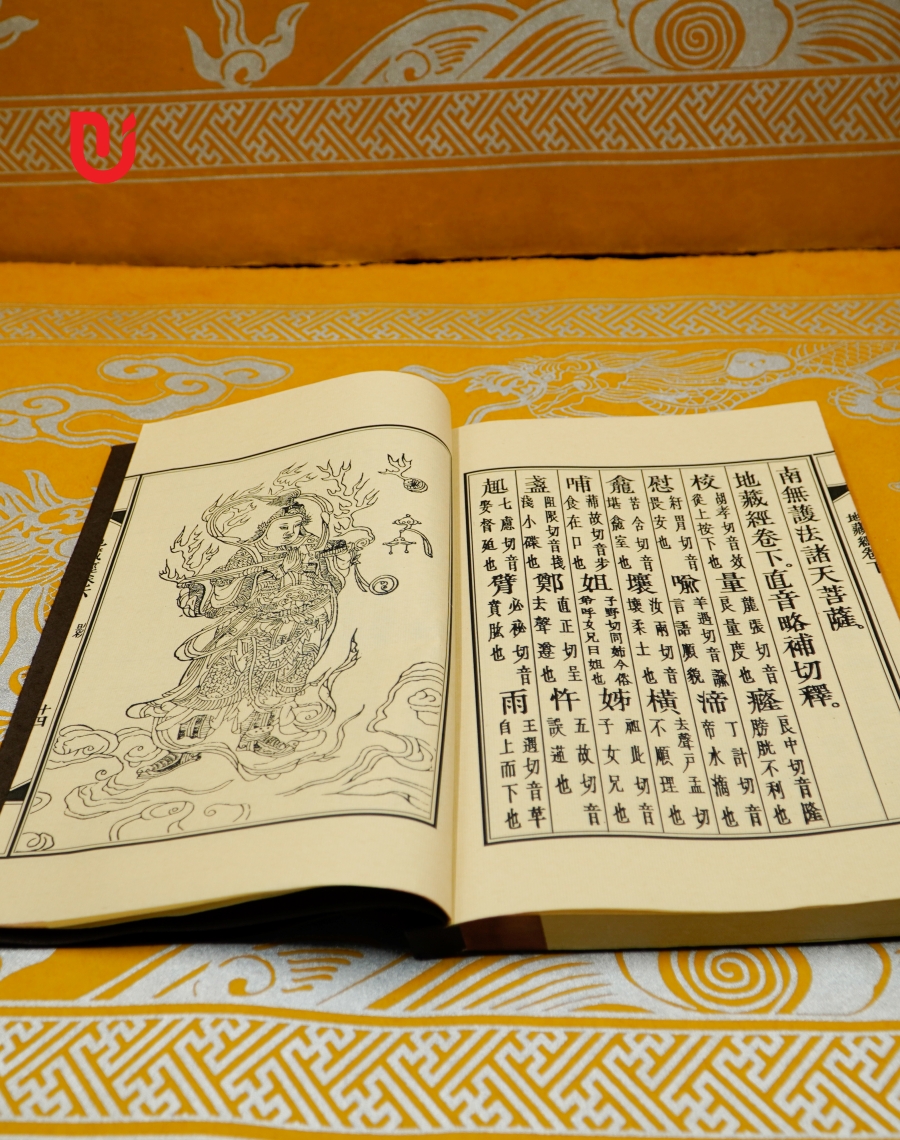 南無護法諸天菩薩。
地藏經卷下。直音略補切釋。
校胡孝切音效從上按下也量龍張切音良量度也癃良中切音隆膀胱不利也
慰紆胃切音畏安也喻羊遇切音諭言語順貌渧丁計切音帝水摘也
龕苦含切音堪龕室也壤汝兩切音壤柔土也橫去聲戶孟切不順理也
哺蒲故切音步食在口也姐子野切同姊今俗弟呼女兄曰姐也姊祖此切音子女兄也
盞阻限切音琖小碟也鄭直正切呈去聲遵也忤五故切音誤逆也
趣七慮切音娶督趨也臂必祕切音賁肱也雨王遇切音芋自上而下也
地藏經卷下
廿四